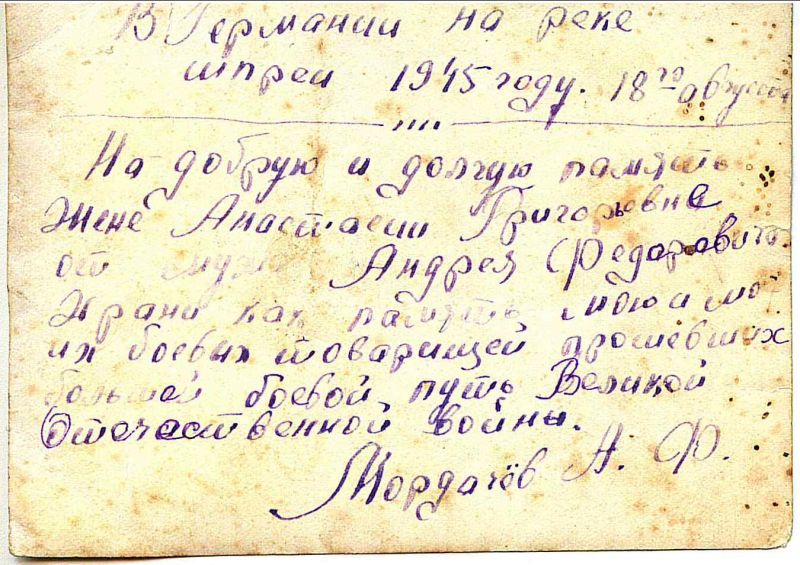 В Германии на реке
шпреи 1945 году. 18го августа
На добрую и долгую память
Жене Анастасии Григорьевне
от мужа Андрея Федоровича.
Храни как память мою и мо-
их боевых товарищей прошевших
большой боевой путь Великой
Отечественной войны.
Мордачёв А. Ф.